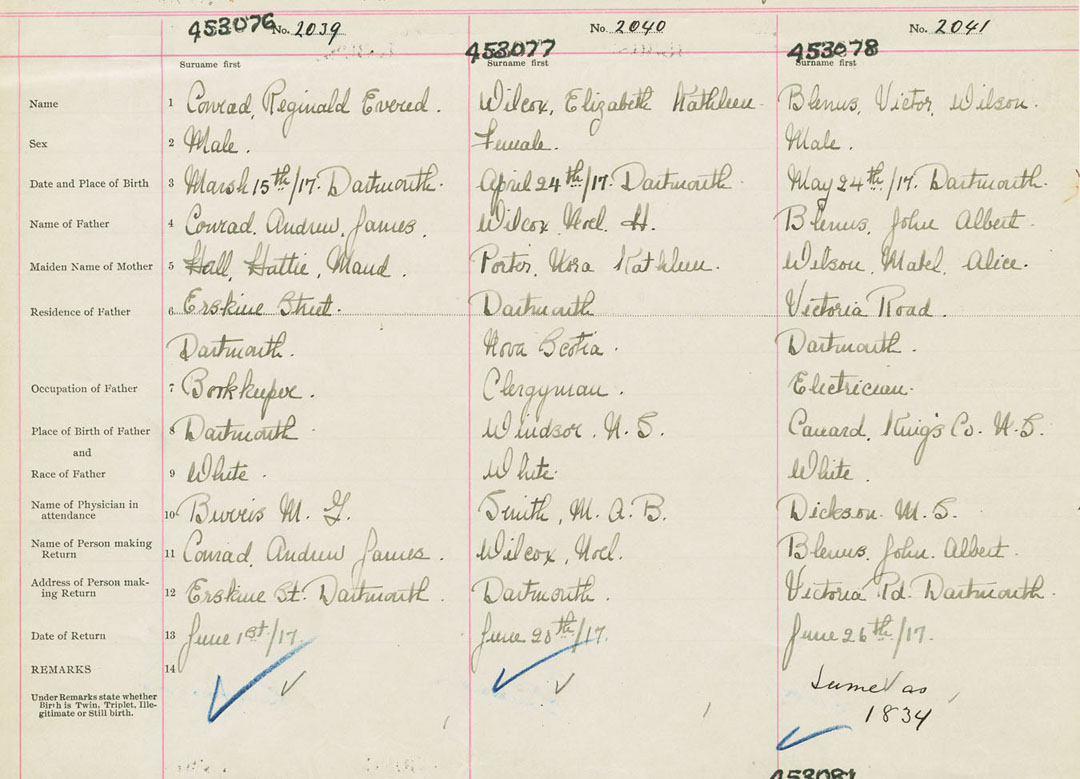 453076 No. 2039 No. 2040 No. 2041
453077 453078
Surname first Surname first Surname first
Name 1 Conrad, Reginald Evered. Wilcox, Elizabeth Kathleen. Blenus, Victor, Wilson.
Sex 2 Male. Female. Male.
Date and Place of Birth 3 Marsh 15th/17. Dartmouth. April 24th/17. Dartmouth. May 24th/17. Dartmouth.
Name of Father 4 Conrad, Andrew, James. Wilcox Noel H. Blenus, John Albert
Maiden Name of Mother 5 Hall, Hattie, Maud. Porter, Nora Kathleen. Wilson, Mabel, Alice.
Residence of Father 6 Erskine Street. Dartmouth Victoria Road.
Dartmouth. Nova Scotia. Dartmouth.
Occupation of Father 7 Bookkeeper. Clergyman. Electrician.
Place of Birth of Father 8 Dartmouth Windsor, N.S. King's Co. N.S.
and
Race of Father 9 White. White. White.
Name of Physician in
attendance 10 M. G. Smith, M. A. B. Dickson. M. S.
Name of Person making
Return 11 Conrad, Andrew James. Wilcox, Noel. Blenus, John. Albert.
Address of Person mak-
ing Return 12 Erskine St. Dartmouth. Dartmouth. Victoria Rd. Dartmouth.
Date of Return 13 June 1st/17. June 20th/17. June 26th/17.
REMARKS 14
Under Remarks state whether
Birth is Twin, Triplet, Ille-
gitimate or Still birth.
Same as
1834
453081